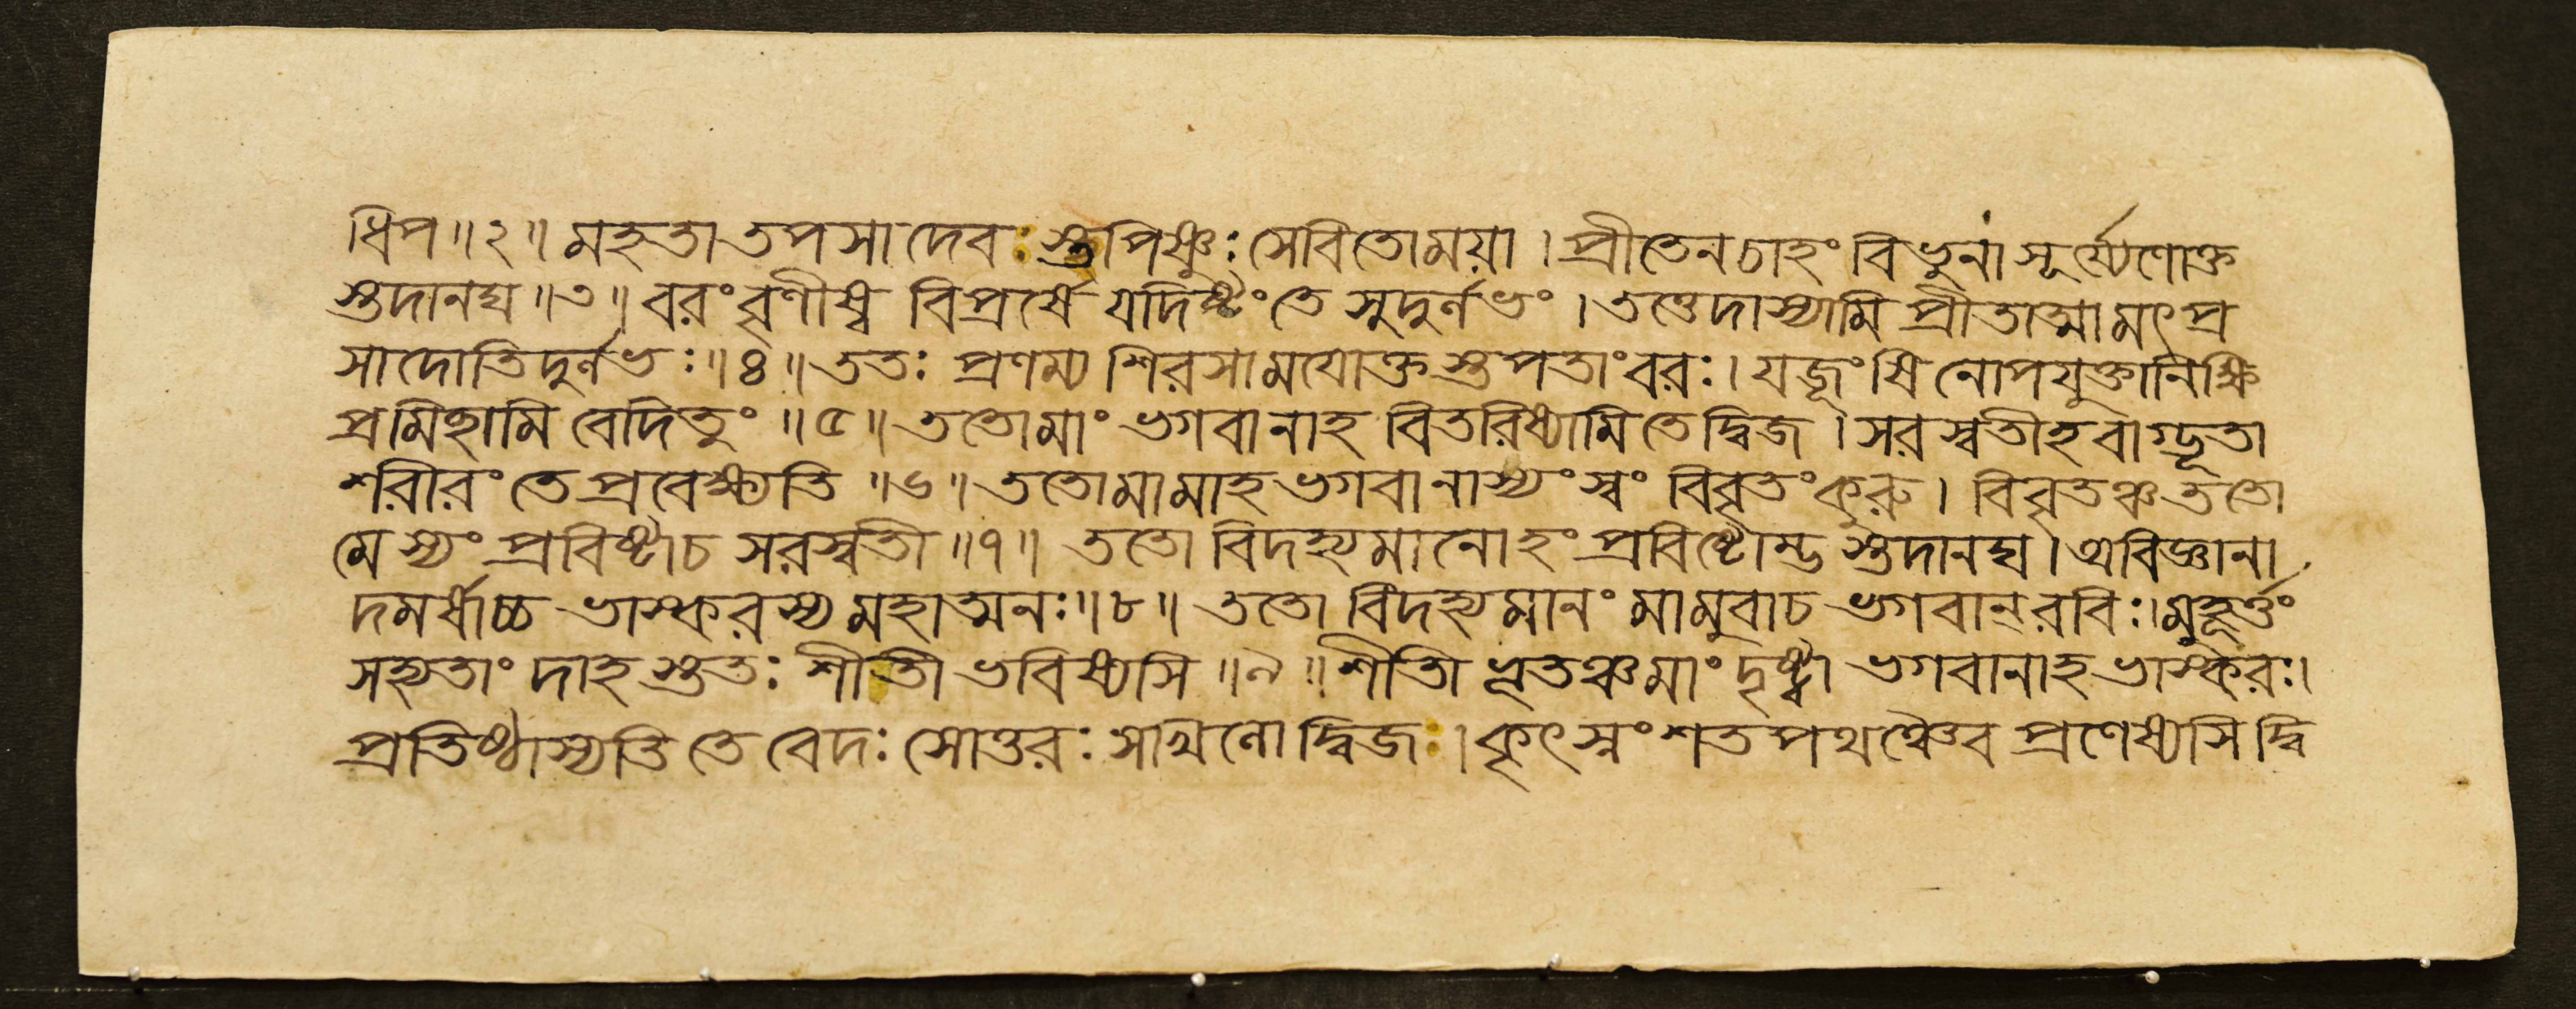 ধিপ॥২॥ মহতা তপসা দেবঃ স্তপিষ্ণুঃ সেবিতোময়া। প্রীতেনচাহং বিভুনা সূর্য্যেণোক্ত
স্তদানঘ॥৩॥ বরং বৃণীষ্ব বিপ্রর্ষে যদিষ্টং তে সুদুর্লভং। তত্তেদাস্যামি প্রীতাত্মা মৎপ্র
সাদোতিদুর্লভঃ॥৪॥ ততঃ প্রণম্য শিরসা ময়োক্তস্তপতাংবরঃ। যজূংষি নোপযুক্তানি ক্ষি
প্রমিছামি বেদিতুং॥৫॥ ততোমাং ভগবানাহ বিতরিষ্যামি তে দ্বিজ। সরস্বতীহ বাগ্ভূতা
শরীরং তে প্রবেক্ষ্যতি॥৬॥ ততোমামাহ ভগবানাস্যং স্বং বিবৃতং কুরু। বিবৃতঞ্চ ততো
মেস্যং প্রবিষ্টাচ সরস্বতী॥৭॥ ততো বিদহ্যমানোহং প্রবিষ্টোম্ভস্তদানঘ। অবিজ্ঞানা
দমর্ষাচ্চ ভাস্করস্য মহাত্মনঃ॥৮॥ ততো বিদহ্যমানং মামুবাচ ভগবান্রবিঃ। মুহূর্ত্তং
সহ্যতাং দাহস্ততঃ শীতী ভবিষ্যসি॥৯॥ শীতী ভূতঞ্চমাং দৃষ্ট্বা ভগবানাহ ভাস্করঃ।
প্রতিষ্ঠাস্যতি তে বেদঃ সোত্তরঃ সাখিলো দ্বিজঃ। কৃৎস্নং শতপথঞ্চৈব প্রণেষ্যসি দ্বি